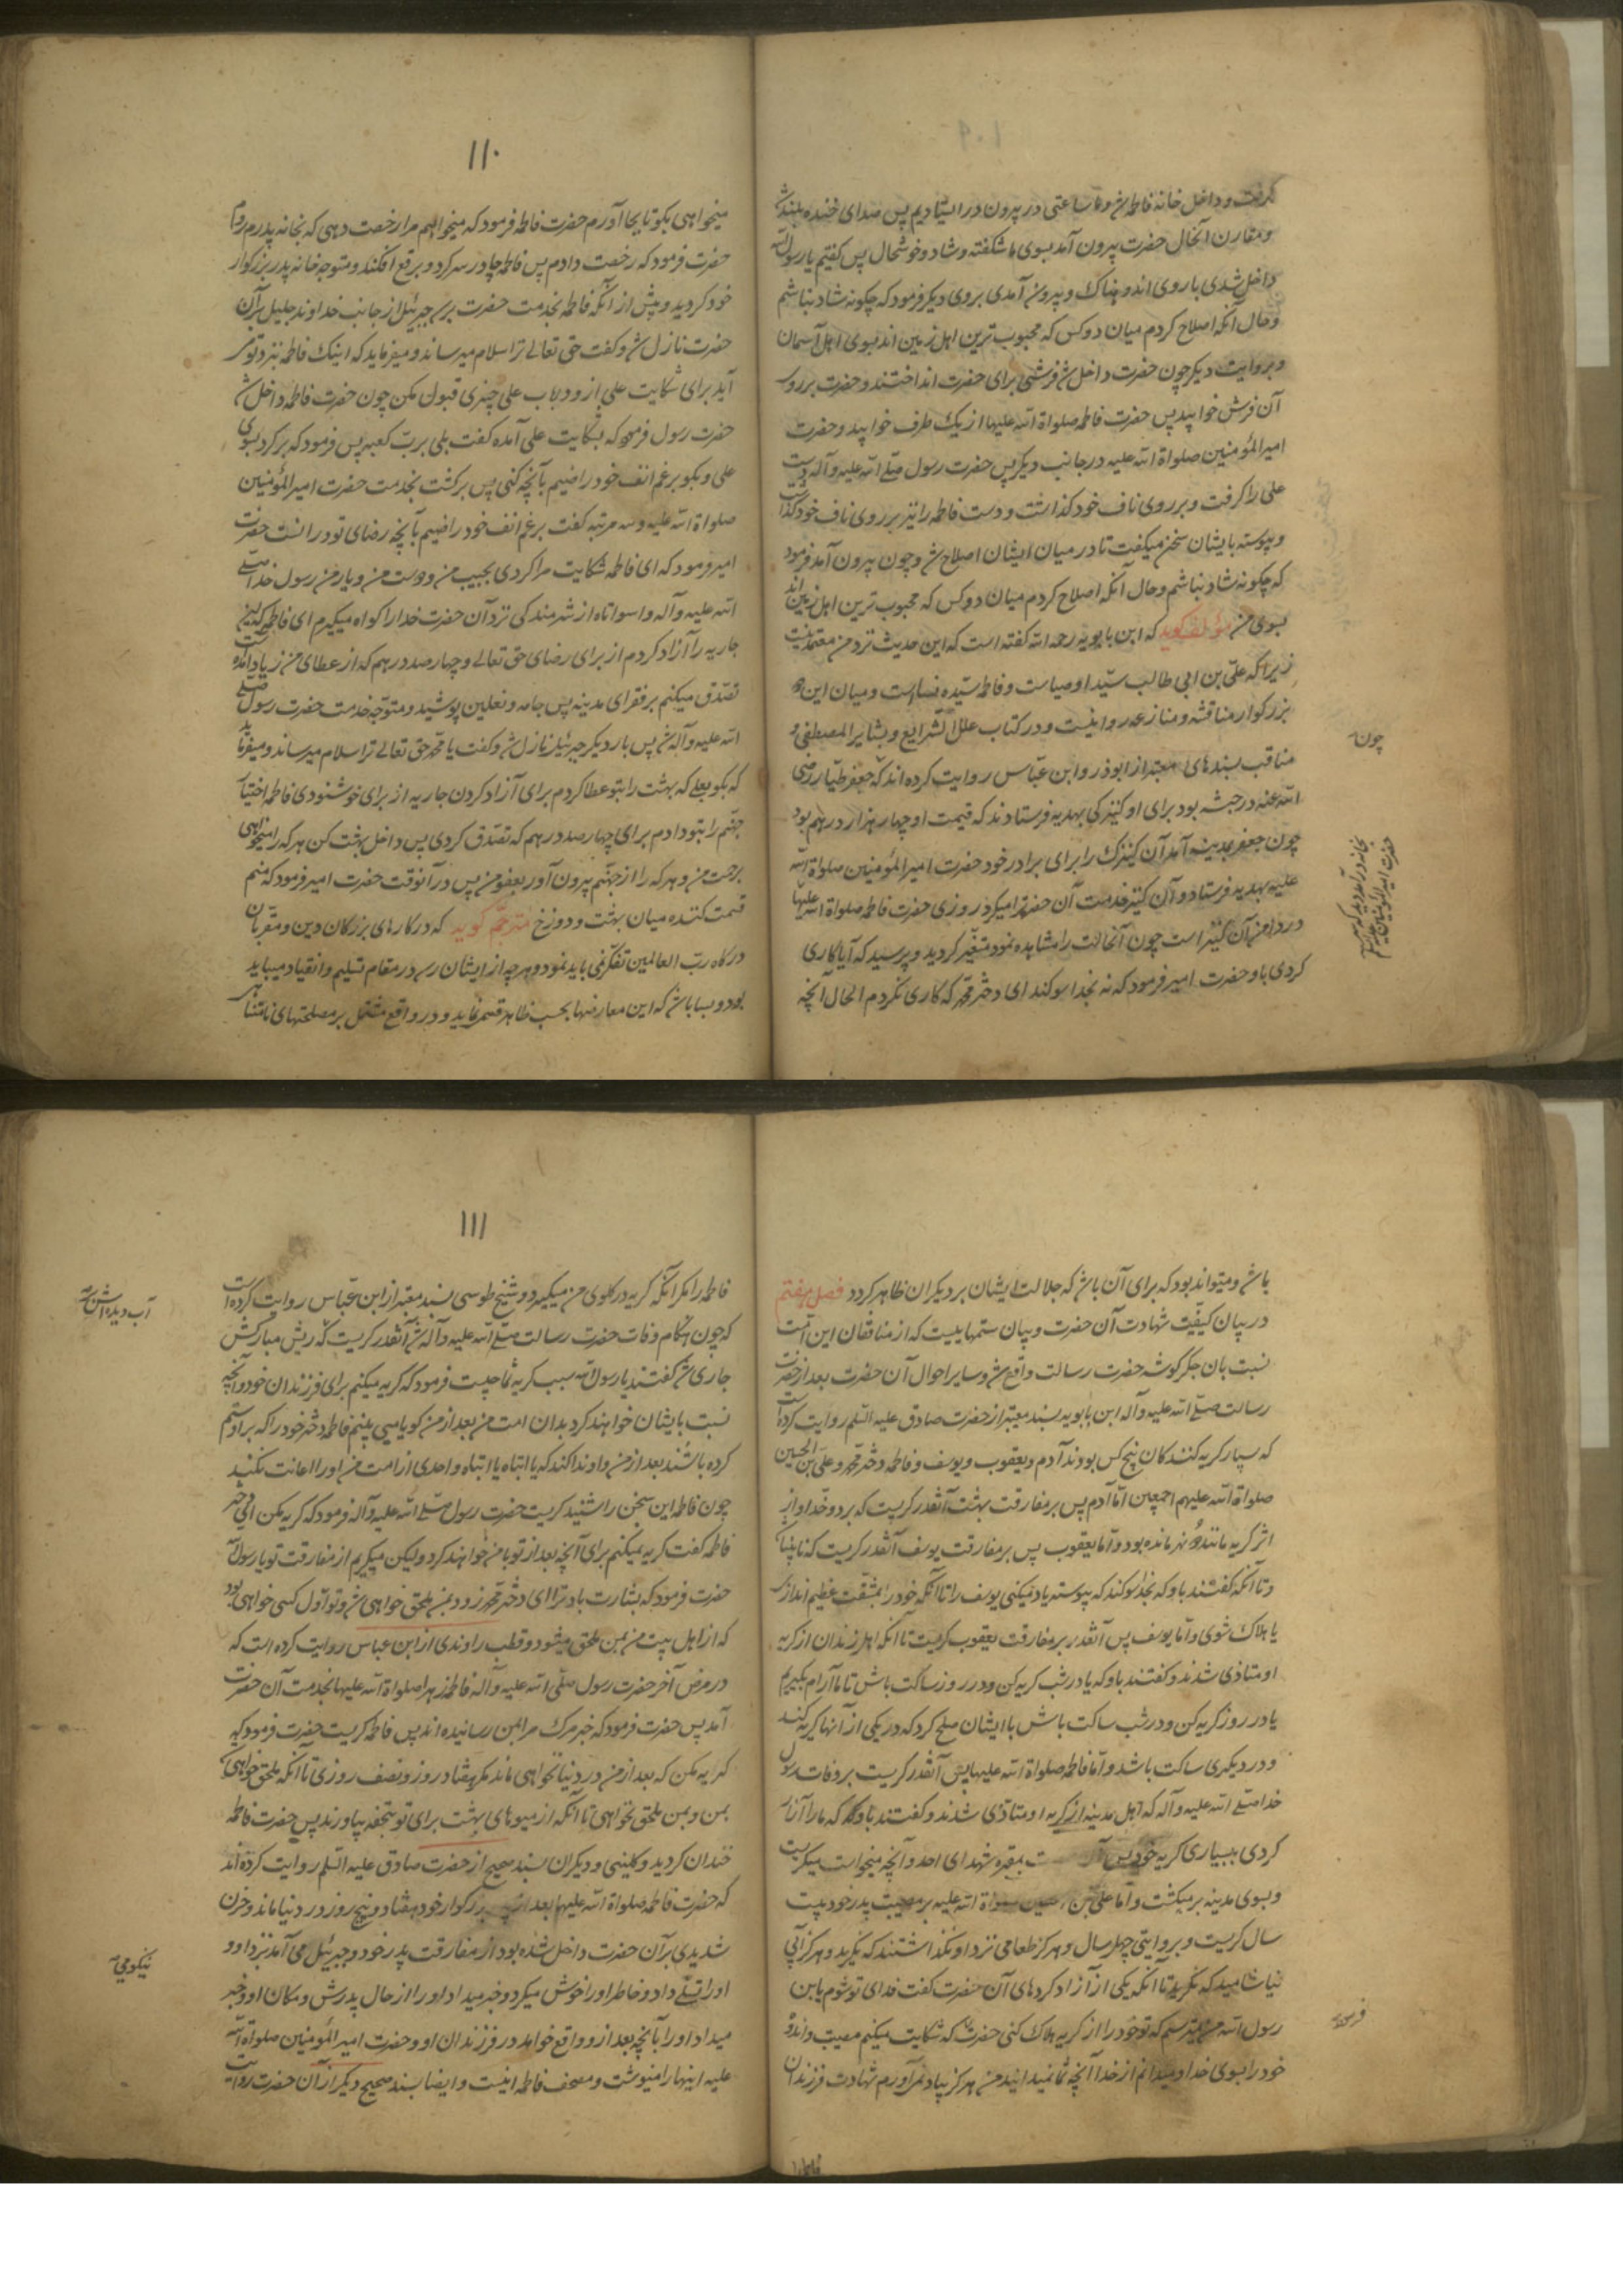 گرفت و داخل خانه فاطمه شد و ما ساعتی در بیرون در ایستادیم پس صدای خنده بلند شد
و مقارن آنحال حضرت بیرون آمد بسوی ما شکفته و شاد و خوشحال پس کفتیم یا رسول الله
داخل شدی با روی اندوهناک و بیرون آمدی بروی دیکر فرمود که چکونه شاد نباشم
و حال آنکه اصلاح کردم میان دو کس که محبوب ترین اهل زمین اند بسوی اهل آسمان
و بروایت دیکر چون حضرت داخل شد فرشی برای حضرت انداختند و حضرت بر روی
آن فرش خوابید پس حضرت فاطمه صلواة الله علیها از یک طرف خوابید و حضرت
امیر المؤمنین صلواة الله علیه در جانب دیکر پس حضرت رسول صلی الله علیه و آله دست
علی را کرفت و بر روی ناف خود کذاشت و دست فاطمه را نیز بر روی ناف خود کذاشت
و پیوسته با یشان سخن میکفت تا در میان ایشان اصلاح شد و چون بیرون آمد فرمود
که چکونه شاد نباشم و حال آنکه اصلاح کردم میان دو کس که محبوب ترین اهل زمین اند
بسوی من مؤلف کوید که ابن بابویه رحمه الله کفته است که این حدیث نزد من معتمد نیست
زیرا که علی بن ابی طالب سید اوصیاست و فاطمه سیده نساء است و میان این دو
بزرکوار مناقشه و منازعه روا نیست و در کتاب علل الشرایع و بشایر المصطفی و
مناقب بسندهای معتبر از ابوذر و ابن عباس روایت کرده اند که چون جعفر طیار رضی
الله عنه در حبشه بود برای او کنیزکی بهدیه فرستادند که قیمت او چهار هزار درهم بود
چون جعفر بمدینه آمد آن کنیزک را برای برادر خود حضرت امیر المؤمنین صلواة الله
علیه بهدیه فرستاد و آن کنیز خدمت آن حضرت را میکرد روزی حضرت فاطمه صلواة الله علیها
در دامن آن کنیز است چون آنحالت را مشاهده نمود متغیر کردید و پرسید که آیا کاری
کردی با و حضرت امیر فرمود که نه بخدا سوکند ای دختر محمد که کاری نکردم الحال آنچه
چون
بخانه درآمد دید که سر
حضرت امیر المؤمنین علیه السلم
۱۱۰
میخواهی بکو تا بجا آورم حضرت فاطمه فرمود که میخواهم مرا رخصت دهی که بخانه پدرم روم
حضرت فرمود که رخصت دادم پس فاطمه چادر سر کرد و برقع افکند و متوجه خانه پدر بزرکوار
خود کردید و پیش از آنکه فاطمه بخدمت حضرت برسد جبرئیل از جانب خداوند جلیل بر آن
حضرت نازل شد و کفت حق تعالی ترا سلام میرساند و میفرماید که اینک فاطمه بنزد تو می
آید برای شکایت علی از و در باب علی چیزی قبول مکن چون حضرت فاطمه داخل شد
حضرت رسول فرمود که بشکایت علی آمده کفت بلی برب کعبه پس فرمود که برکرد بسوی
علی و بکو برغم انف خود راضیم بآنچه کنی پس برکشت بخدمت حضرت امیر المؤمنین
صلواة الله علیه و سه مرتبه کفت برغم انف خود راضیم بآنچه رضای تو در انست حضرت
امیر فرمود که ای فاطمه شکایت مرا کردی بحبیب من و دوست من و یار من رسول خدا صلی
الله علیه و آله وا سواتاه از شرمندکی نزد آن حضرت خدا را کواه میکیرم ای فاطمه که این
جاریه را آزاد کردم از برای رضای حق تعالی و چهارصد درهم که از عطای من زیاد آمده است
تصدق میکنم بر فقرای مدینه پس جامه و نعلین پوشید و متوجه خدمت حضرت رسول صلی
الله علیه و آله شد پس بار دیکر جبرئیل نازل شد و کفت یا محمد حق تعالی ترا سلام میرساند و میفرماید
که بکو بعلی که بهشت را بتو عطا کردم برای آزاد کردن جاریه از برای خوشنودی فاطمه و اختیار
جهنم را بتو دادم برای چهارصد درهم که تصدق کردی پس داخل بهشت کن هر که را میخواهی
برحمت من و هر که را از جهنم بیرون آور بعفو من پس در آنوقت حضرت امیر فرمود که منم
قسمت کننده میان بهشت و دوزخ مترجم کوید که در کارهای بزرکان دین و مقربان
درکاه رب العالمین تفکر نمی باید نمود و هر چه از ایشان رسد در مقام تسلیم و انقیاد میباید
بود و بسا باشد که این معارضها بحسب ظاهر قصر نماید و در واقع مشتمل بر مصلحتهای نامتناهی
باشد و میتواند بود که برای آن باشد که جلالت ایشان بر دیکران ظاهر کردد فصل هفتم
در بیان کیفیت شهادت آن حضرت و بیان ستمهاییست که از منافقان این امت
نسبت بان جکر کوشه حضرت رسالت واقع شد و سایر احوال آن حضرت بعد از حضرت
رسالت صلی الله علیه و آله ابن بابویه بسند معتبر از حضرت صادق علیه السلم روایت کرده است
که بسیار کریه کنندکان پنج کس بودند آدم و یعقوب و یوسف و فاطمه دختر محمد و علی بن الحسین
صلواة الله علیهم اجمعین اما آدم پس بر مفارقت بهشت آنقدر کریست که بر دو خد او از
اثر کریه مانند دو نهر مانده بود و اما یعقوب پس بر مفارقت یوسف آنقدر کریست که نابینا شد
و تا آنکه کفتند باو که بخدا سوکند که پیوسته یاد میکنی یوسف را تا آنکه خود را بمشقت عظیم اندازی
یا هلاک شوی و اما یوسف پس آنقدر بر مفارقت یعقوب کریست تا آنکه اهل زندان از کریه
او متاذی شدند و کفتند باو که یا در شب کریه کن و در روز ساکت باش تا ما آرام بکیریم
یا در روز کریه کن و در شب ساکت باش با ایشان صلح کرد که در یکی از آنها کریه کند
و در دیکری ساکت باشد و اما فاطمه صلواة الله علیها پس آنقدر کریست بر وفات رسول
خدا صلی الله علیه و آله که اهل مدینه از کریه او متاذی شدند و کفتند باو که ما را آزار
کردی به بسیاری کریه خود پس بمقبره شهدای احد و آنچه میخواست میکریست
و بسوی مدینه برمیکشت و اما علی بن حسین صلواة الله علیه بر مصیبت پدر خود بیست
سال کریست و بروایتی چهل سال و هرکز طعامی نزد او نکذاشتند که نکرید و هرکز آبی
نیاشامید که نکرید تا آنکه یکی از آزاد کردهای آن حضرت کفت فدای تو شوم یا بن
رسول الله من میترسم که تو خود را از کریه هلاک کنی حضرت که شکایت میکنم مصیبت و اندوه
خود را بسوی خدا و میدانم از خدا آنچه شما نمیدانید من هرکز بیاد نمی آورم شهادت فرزندان
فرمود
فاطمه را
۱۱۱
فاطمه را مکر آنکه کریه در کلوی من میکیرد و شیخ طوسی بسند معتبر از ابن عباس روایت کرده است
که چون هنکام وفات حضرت رسالت صلی الله علیه و آله شد آنقدر کریست که ریش مبارکش
جاری شد کفتند یا رسول الله سبب کریه شما چیست فرمود که کریه میکنم برای فرزندان خود و آنچه
نسبت بایشان خواهند کرد بدان امت من بعد از من کویا می بینم فاطمه دختر خود را که بر او ستم
کرده باشند بعد از من و او ندا کند که یا ابتاه یا ابتاه و احدی از امت من او را اعانت نکند
چون فاطمه این سخن را شنید کریست حضرت رسول صلی الله علیه و آله فرمود که کریه مکن ای دختر
فاطمه کفت کریه نمیکنم برای آنچه بعد از تو با من خواهند کرد ولیکن میکریم از مفارقت تو یا رسول الله
حضرت فرمود که بشارت باد ترا ای دختر محمد زود بمن ملحق خواهی شد و تو اول کسی خواهی بود
که از اهل بیت من بمن ملحق میشود و قطب راوندی از ابن عباس روایت کرده است که
در مرض آخر حضرت رسول صلی الله علیه و آله فاطمه زهرا صلواة الله علیها بخدمت آن حضرت
آمد پس حضرت فرمود که خبر مرک مرا بمن رسانیده اند پس فاطمه کریست حضرت فرمود که
کریه مکن که بعد از من در دنیا نخواهی ماند مکر هفتاد روز و نصف روزی تا آنکه ملحق خواهی شد
بمن و بمن ملحق نخواهی تا آنکه از میوهای بهشت برای تو بتحفه بیاورند پس حضرت فاطمه
خندان کردید و کلینی و دیکران بسند صحیح از حضرت صادق علیه السلم روایت کرده اند
که حضرت فاطمه صلواة الله علیها بعد از پدر بزرکوار خود هفتاد و پنج روز در دنیا ماند و حزن
شدیدی بر آن حضرت داخل شده بود از مفارقت پدر خود و جبرئیل می آمد نزد او و
او را تسلی داد و خاطر او را خوش میکرد و خبر میداد او را از حال پدرش و مکان او و خبر
میداد او را بآنچه بعد از و واقع خواهد در فرزندان او و حضرت امیر المؤمنین صلواة الله
علیه اینها را مینوشت و مصحف فاطمه اینست و ایضا بسند صحیح دیکر از آن حضرت روایت
آب دیده اش
نیکومی